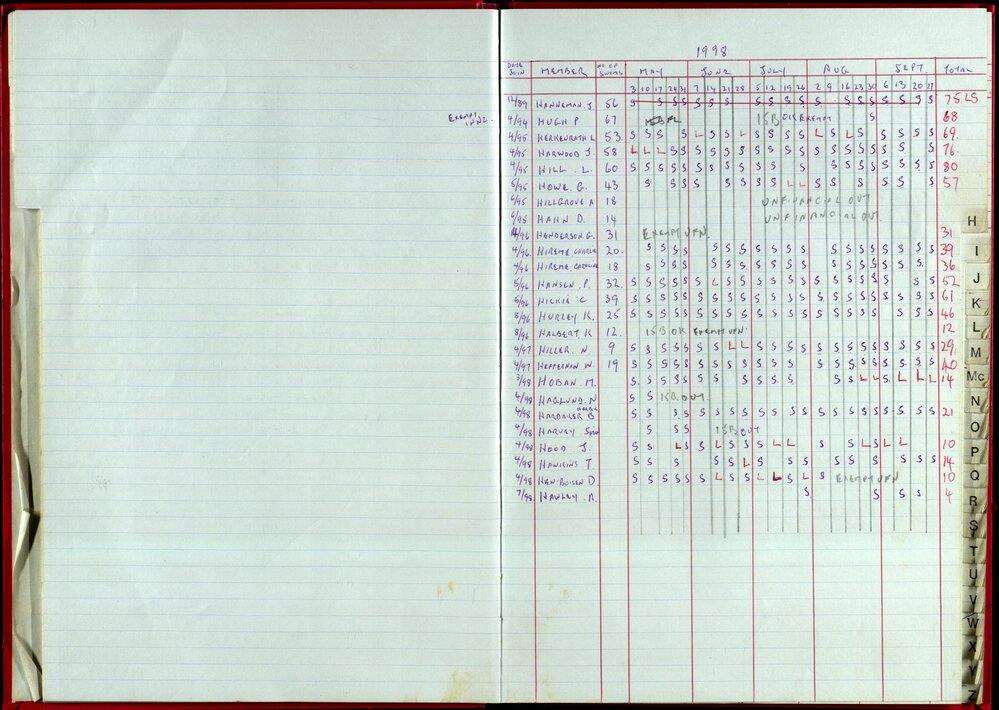 1998
DATE JOIN MEMBER NO OF SWIMS MAY JUNE JULY AUG SEPT TOTAL
3 10 17 24 31 7 14 21 28 5 12 19 26 2 9 16 23 30 6 13 20 27
12/89 HANNEMAN J. 56 S S S S S S S S S S S S S S S S S S S S 75 LS
EXEMPT
4/94 HUGH P 67 15B OK EXEMPT S 68
4/95 HERKENRATH L 53 S S S S L S S L S S S S L S L S S S S S 69
4/95 HARWOOD J. 58 L L L S S S S S S S S S S S S S S S S S S 76
4/95 HILL . L. 60 S S S S S S S S S S S S S S S S S S S S 80
5/95 HOWE. G. 43 S S S S S S S S L L S S S S S S 57
6/95 HILLGROVE A 18 UNFINANCIAL OUT
6/95 HAHN D. 14 UNFINANCIAL OUT.
4/96 HENDERSON G. 31 EXEMPT UFN. 31
4/96 HIREME. CHARLIE 20. S S S S S S S S S S S S S S S S S S 39
4/96 HIREME. CAROLINE 18 S S S S S S S S S S S S S S S S S 36
5/96 HANSEN . P. 32 S S S S S S L S S S S S S S S S S S S S S 52
5/96 HICKIE C 39 S S S S S S S S S S S S S S S S S S S S S S 61
8/96 HURLEY K. 25 S S S S S S S S S S S S S S S S S S S S S 46
8/96 HALBERT. K 12. 15B OK EXEMPT UFN. 12
4/97 HILLER. N. 9 S S S S S S S L L S S S S S S S S S S S S S 29
4/97 HEFFERNAN W. 19 S S S S S S S S S S S S S S S S S S S S S 40
3/98 HOBAN M. S S S S S S S S S S S S S L L S L L L 14
4/98 HAGLUND. N S S 15B. OUT.
4/98 HARDAKER B S S S S S S S S S S S S S S S S S S S S S 21
4/98 HARVEY S S S 15B OUT
4/98 HOOD J. S S L S S L S S S L L S S L S L L 10
4/98 HAWKINS T. S S S S S L S S S S S S S S S 14
4/98 HEN-BOISEN D S S S S S S L S S L L S L S EXEMPT UFN 10
7/98 HAWLEY . A. S S S S 4
H
I
J
K
L
M
Mc
N
O
P
Q
R
S
T
U
V
W
X
Y
Z